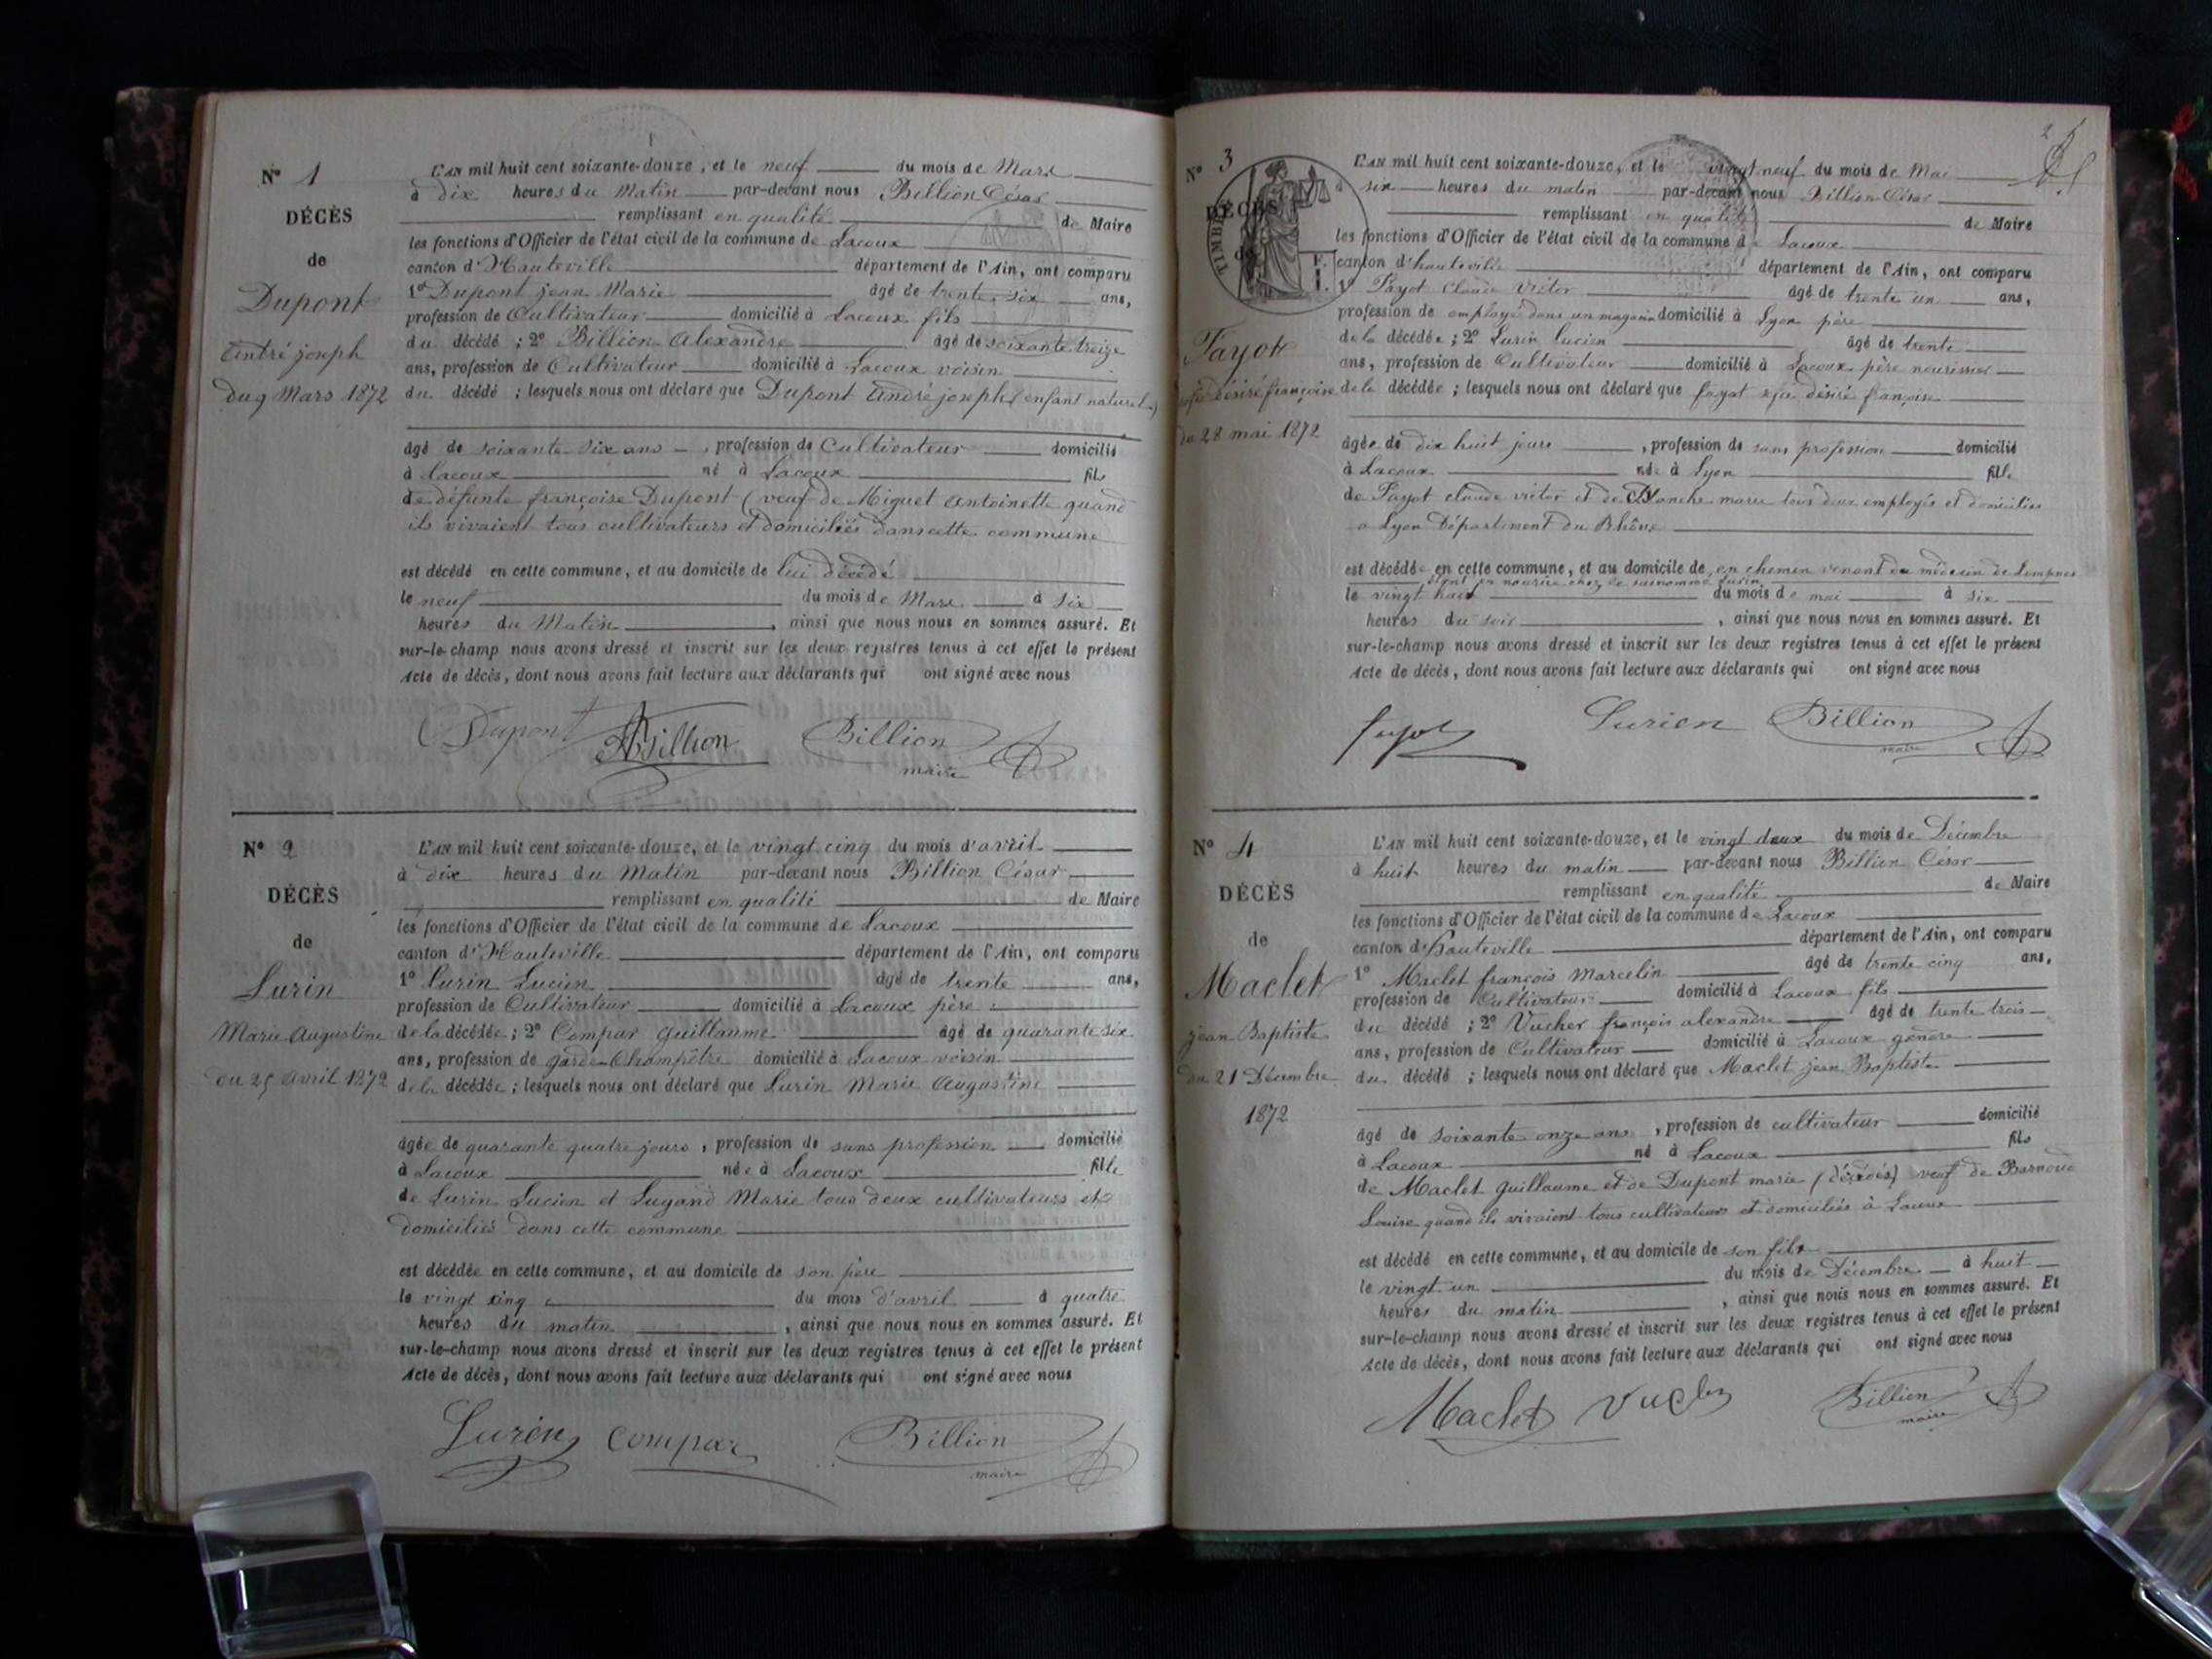 1
N° 1
DÉCÈS
de
Dupont
André joseph
du 9 Mars 1872
L'AN mil huit cent soixante-douze, et le neuf du mois de Mars
à dix heures du Matin par-devant nous Billion César
remplissant en qualité de Maire
les fonctions d'Officier de l'état civil de la commune de Lacoux
canton d'Hauteville département de l'Ain, ont comparu
1° Dupont jean Marie âgé de trente six ans,
profession de Cultivateur domicilié à Lacoux fils
du décédé ; 2° Billion Alexandre âgé de soixante treize
ans, profession de Cultivateur domicilié à Lacoux voisin
du décédé ; lesquels nous ont déclaré que Dupont André joseph (enfant naturel)
âgé de soixante six ans, profession de Cultivateur domicilié
à Lacoux né à Lacoux fils
de défunte françoise Dupont (veuf de Miguet Antoinette quand
ils vivaient tous cultivateurs et domiciliés dans cette commune
est décédé en cette commune, et au domicile de lui décédé
le neuf du mois de Mars à six
heures du Matin, ainsi que nous nous en sommes assuré. Et
sur-le-champ nous avons dressé et inscrit sur les deux registres tenus à cet effet le présent
Acte de décès, dont nous avons fait lecture aux déclarants qui ont signé avec nous
Dupont ABillion Billion
maire
N° 2
DÉCÈS
de
Lurin
Marie Augustine
du 25 Avril 1872
L'AN mil huit cent soixante-douze, et le vingt cinq du mois d'avril
à dix heures du Matin par-devant nous Billion César
remplissant en qualité de Maire
les fonctions d'Officier de l'état civil de la commune de Lacoux
canton d'Hauteville département de l'Ain, ont comparu
1° Lurin Lucien âgé de trente ans,
profession de Cultivateur domicilié à Lacoux père
de la décédée ; 2° Compar Guillaume âgé de quarante six
ans, profession de garde-Champêtre domicilié à Lacoux voisin
de la décédée ; lesquels nous ont déclaré que Lurin Marie Augustine
âgée de quarante quatre jours, profession de sans profession domicilié
à Lacoux née à Lacoux fille
de Lurin Lucien et Lugand Marie tous deux cultivateurs et
domiciliés dans cette commune
est décédée en cette commune, et au domicile de son père
le vingt cinq du mois d'avril à quatre
heures du matin, ainsi que nous nous en sommes assuré. Et
sur-le-champ nous avons dressé et inscrit sur les deux registres tenus à cet effet le présent
Acte de décès, dont nous avons fait lecture aux déclarants qui ont signé avec nous
Lurin Compar Billion
maire
2
N° 3
DÉCÈS
de
TIMBRE
F.
Fayot
désiré françoise
du 28 mai 1872
L'AN mil huit cent soixante-douze, et le vingt neuf du mois de Mai
à six heures du matin par-devant nous Billion César
remplissant en qualité de Maire
les fonctions d'Officier de l'état civil de la commune de Lacoux
canton d'hauteville département de l'Ain, ont comparu
1° Fayot Claude Victor âgé de trente un ans,
profession de employé dans un magasin domicilié à Lyon père
de la décédée ; 2° Lurin Lucien âgé de trente
ans, profession de Cultivateur domicilié à Lacoux père nourissier
de la décédée ; lesquels nous ont déclaré que fayot désiré françoise
âgée de dix huit jours, profession de sans profession domicilié
à Lacoux née à Lyon fille
de Fayot claude victor et de Blanche marie tous deux employés et domiciliés
a Lyon Département du Rhône
est décédée en cette commune, et au domicile de en chemin venant du médecin de Lompnes
étant en nourice chez le surnommé Lurin
le vingt huit du mois de mai à six
heures du soir, ainsi que nous nous en sommes assuré. Et
sur-le-champ nous avons dressé et inscrit sur les deux registres tenus à cet effet le présent
Acte de décès, dont nous avons fait lecture aux déclarants qui ont signé avec nous
fayot Lurien Billion
maire
N° 4
DÉCÈS
de
Maclet
jean Baptiste
du 21 Décembre
1872
L'AN mil huit cent soixante-douze, et le vingt deux du mois de Décembre
à huit heures du matin par-devant nous Billion César
remplissant en qualité de Maire
les fonctions d'Officier de l'état civil de la commune de Lacoux
canton d'Hauteville département de l'Ain, ont comparu
1° Maclet françois Marcelin âgé de trente cinq ans,
profession de Cultivateur domicilié à Lacoux fils
du décédé ; 2° Vucher françois alexandre âgé de trente trois
ans, profession de Cultivateur domicilié à Lacoux gendre
du décédé ; lesquels nous ont déclaré que Maclet jean Baptiste
âgé de soixante onze ans, profession de cultivateur domicilié
à Lacoux né à Lacoux fils
de Maclet guillaume et de Dupont marie (décédés) veuf de Barnoud
Louise quand ils vivaient tous cultivateurs et domiciliés à Lacoux
est décédé en cette commune, et au domicile de son fils
le vingt un du mois de Décembre à huit
heures du matin, ainsi que nous nous en sommes assuré. Et
sur-le-champ nous avons dressé et inscrit sur les deux registres tenus à cet effet le présent
Acte de décès, dont nous avons fait lecture aux déclarants qui ont signé avec nous
Maclet Vucher Billion
maire